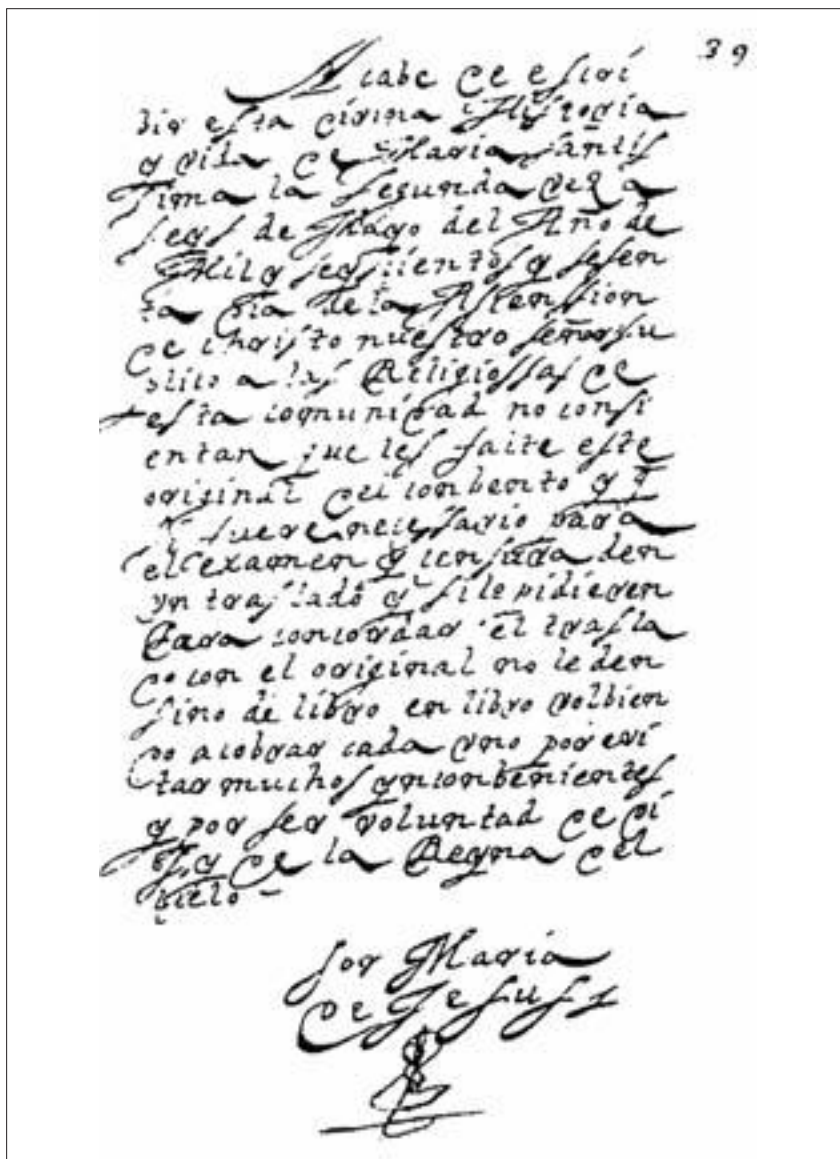 39
Acabe de escri
bir esta divina Historia
y vida de Maria Sañtis
sima la Segunda vez a
seys de Mayo del Año de
Mil y seysçientos y sesen
ta dia de la Ascension
de christo nuestro señor su
plico a las Religiossas de
esta comunidad no consi
entan que les falte este
original del combento y q̃
si fuere necessario para
el examen y censura den
yn traslado y si le pidieren
para concordar el trasla
do con el original no le den
sino de libro en libro volbien
do a cobrar cada vno por evi
tar muchos ynconbenientes
y por ser voluntad de Di
os y de la Reyna del
cielo -
sor Maria
de Jesus